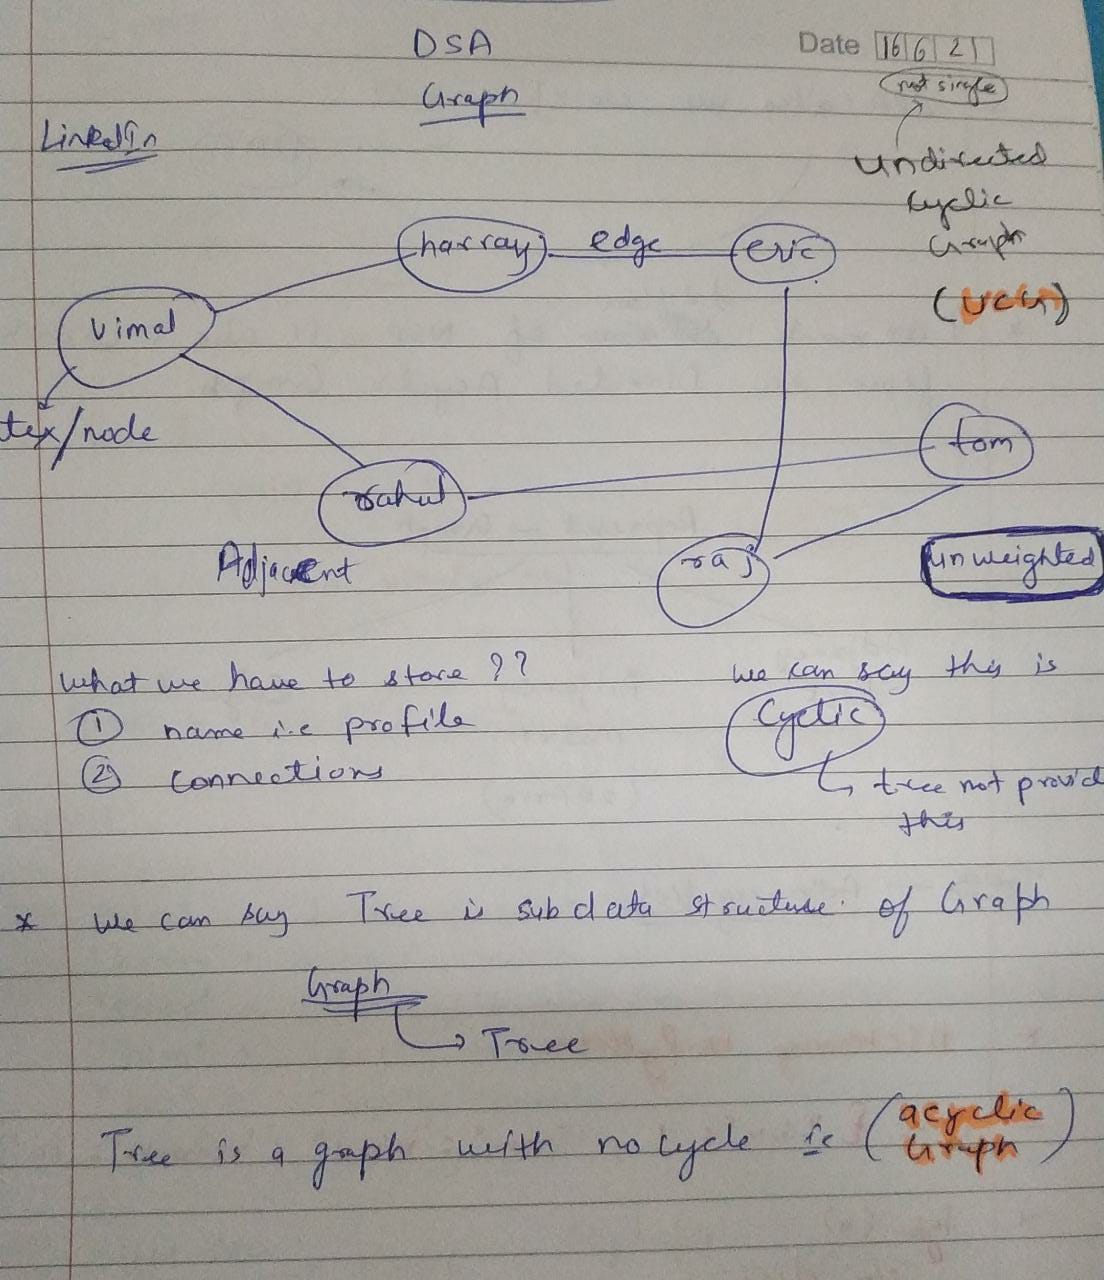 DSA
Date 16 6 21
Graph
not single
LinkedIn
undirected
Cyclic
Graph
(UCG)
harray edge eric
Vimal
tex/node
tom
rahul
Adjacent
raj
unweighted
What we have to store ??
① name i.e profile
② connections
we can say this is
Cyclic
tree not provid
this
* We can say Tree is sub data structure of Graph
Graph
Tree
Tree is a graph with no cycle ie (acyclic
Graph)